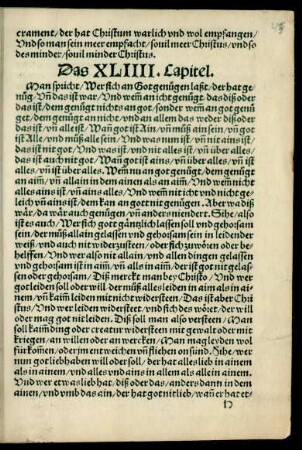 crament, der hat Christum warlich vnd wol empfangen/
Vnd so man sein meer empfacht/ souil meer Christus/ vnd so
des minder/ souil minder Christus.
Das XLIIII. Capitel.
Man spricht/ Wer sich an Got genügen laßt/ der hat ge-
nüg/ Vñ das ist war/ Vnd wem ain icht genügt das diß oder
das ist/ dem genügt nichts an got/ sonder wem an got genü
get/ dem genügt an nicht/ vnd an allem das weder diß oder
das ist/ vñ alles ist/ Wañ got ist Ain/ vñ müß ain sein/ vñ got
ist Alle/ vnd müß alle sein/ Vnd was nun ist/ vñ nit ains ist/
das ist nit got/ Vnd was ist/ vnd nit alles ist/ vñ über alles/
das ist auch nit got/ Wañ got ist ains/ vñ über alles/ vñ ist
alles/ vñ ist über alles. Wem nu an got genügt/ dem genügt
an aim/ vñ allain in dem ainen als an aim/ Vnd wem nicht
alles ains ist/ vñ ains alles/ Vnd wem nit icht vnd nicht ge-
leych vñ ains ist/ dem kan an got nit genügen/ Aber wa diß
wär/ da wär auch genügen/ vñ anders niendert. Sihe/ also
ist es auch/ Wer sich got gäntzlich lassen soll vnd gehorsam
sein/ der müß allain gelassen vnd gehorsam sein in leidender
weiß/ vnd auch nit widersteen/ oder sich zuwören oder be-
helffen/ Vnd wer also nit allain/ vnd allen dingen gelassen
vnd gehorsam ist in aim/ vñ als in aim/ der ist got nit gelas-
sen oder gehorsam/ Diß merckt man bey Christo/ Vnd wer
got leiden soll oder will/ der müß alles leiden in aim als in ai-
nem/ vñ kaim leiden mit nicht widersteen/ Das ist aber Chri
stus/ Vnd wer leiden widersteet/ vnd sich des wört/ der will
oder mag got nit leiden. Diß soll man also versteen/ Man
soll kaim ding oder creatur widersteen mit gewalt oder mit
kriegen/ an willen oder an wercken/ Man mag leyden wol
fürkomen/ oder jm entweichen vñ fliehen on sund. Sihe/ wer
nun got liebhaben will oder soll/ der hat alles lieb in ainem
als in ainem/ vnd alles vnd ains in allem als allein in ainem.
Vnd wer etwas lieb hat/ diß oder das/ anders dann in dem
ainen/ vnd vmb das ain/ der hat got nit lieb/ wañ er hat et-